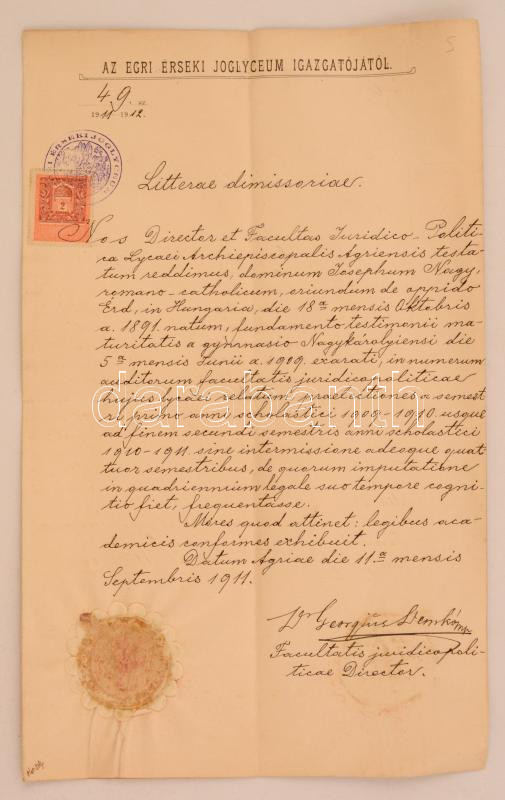 AZ EGRI ÉRSEKI JOGLYCEUM IGAZGATÓJÁTÓL.
49. sz.
1911/1912.
I ÉRSEKI JOGLYCEUM
2
Litterae dimissoriae.
Nos Director et Facultas Iuridico-Politi-
ca Lycaei Archiepiscopalis Agriensis testa-
tum reddimus, dominum Iosephum Nagy,
romano-catholicum, oriundum de oppido
Érd, in Hungaria, die 18ª mensis Oktobris
a. 1891. natum, fundamento testimonii ma-
turitatis a gymnasio Nagykárolyiensi die
5ª mensis Iunii a. 1909. exarati, in numerum
auditorum facultatis juridicopoliticae
hujus lycaei relatum, praelectiones a semest-
ri primo anni scholastici 1909-1910. usque
ad finem secundi semestris anni scholastici
1910-1911. sine intermissione adeoque quat-
tuor semestribus, de quorum imputatione
in quadriennium legale suo tempore cogni-
tio fiet, frequentasse.
Mores quod attinet: legibus aca-
demicis conformes exhibuit.
Datum Agriae die 11ª mensis
Septembris 1911.
Dr Georgius Demkó
Facultatis juridicopoli-
ticae Director.
darabanth